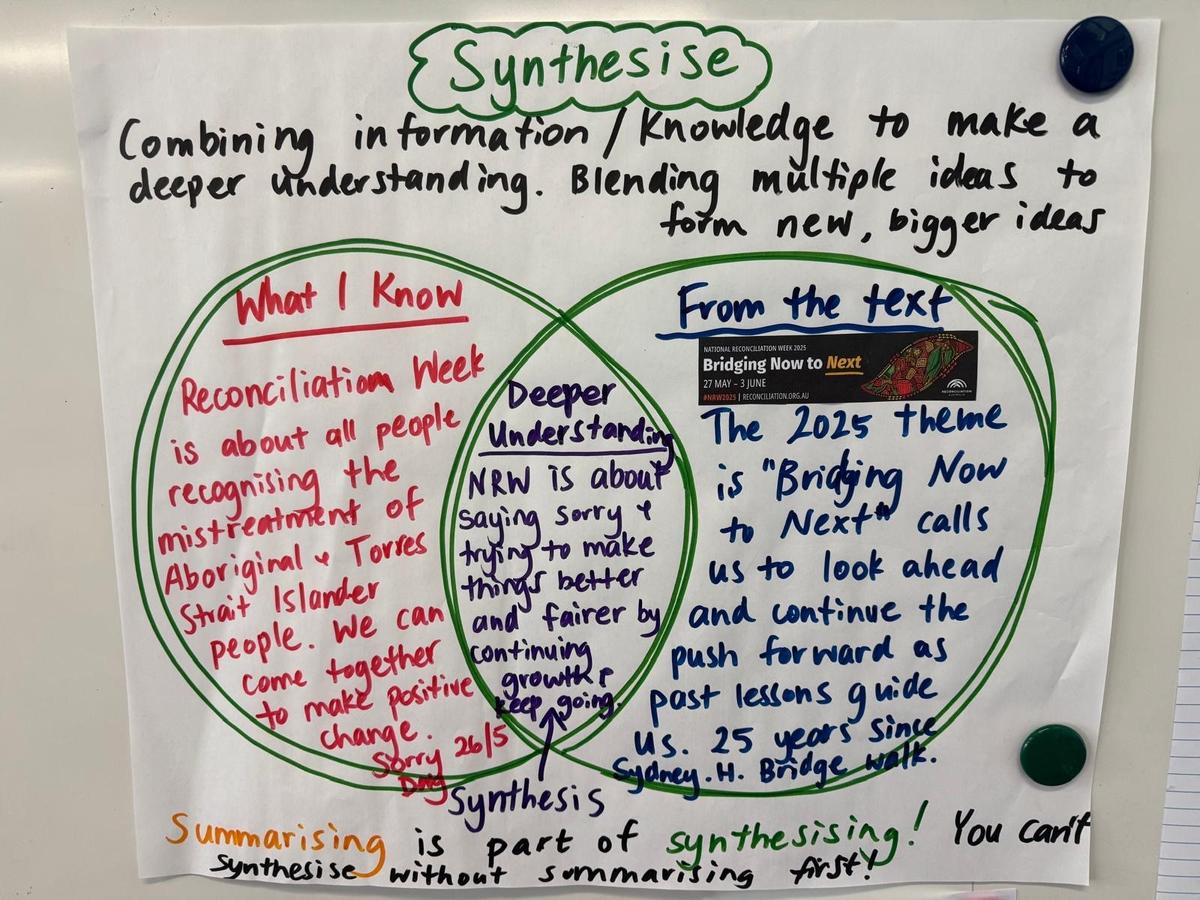 Synthesise
Combining information / Knowledge to make a
deeper understanding. Blending multiple ideas to
form new, bigger ideas
What I Know
Reconciliation Week
is about all people
recognising the
mistreatment of
Aboriginal & Torres
Strait Islander
people. We can
come together
to make positive
change.
Sorry 26/5
Day
Deeper
Understanding
NRW is about
saying sorry &
trying to make
things better
and fairer by
continuing
growth &
keep going.
Synthesis
From the text
NATIONAL RECONCILIATION WEEK 2025
Bridging Now to Next
27 MAY – 3 JUNE
#NRW2025 | RECONCILIATION.ORG.AU
RECONCILIATION
AUSTRALIA
The 2025 theme
is "Bridging Now
to Next" calls
us to look ahead
and continue the
push forward as
past lessons guide
us. 25 years since
Sydney. H. Bridge walk.
Summarising is part of synthesising! You can't
synthesise without summarising first!